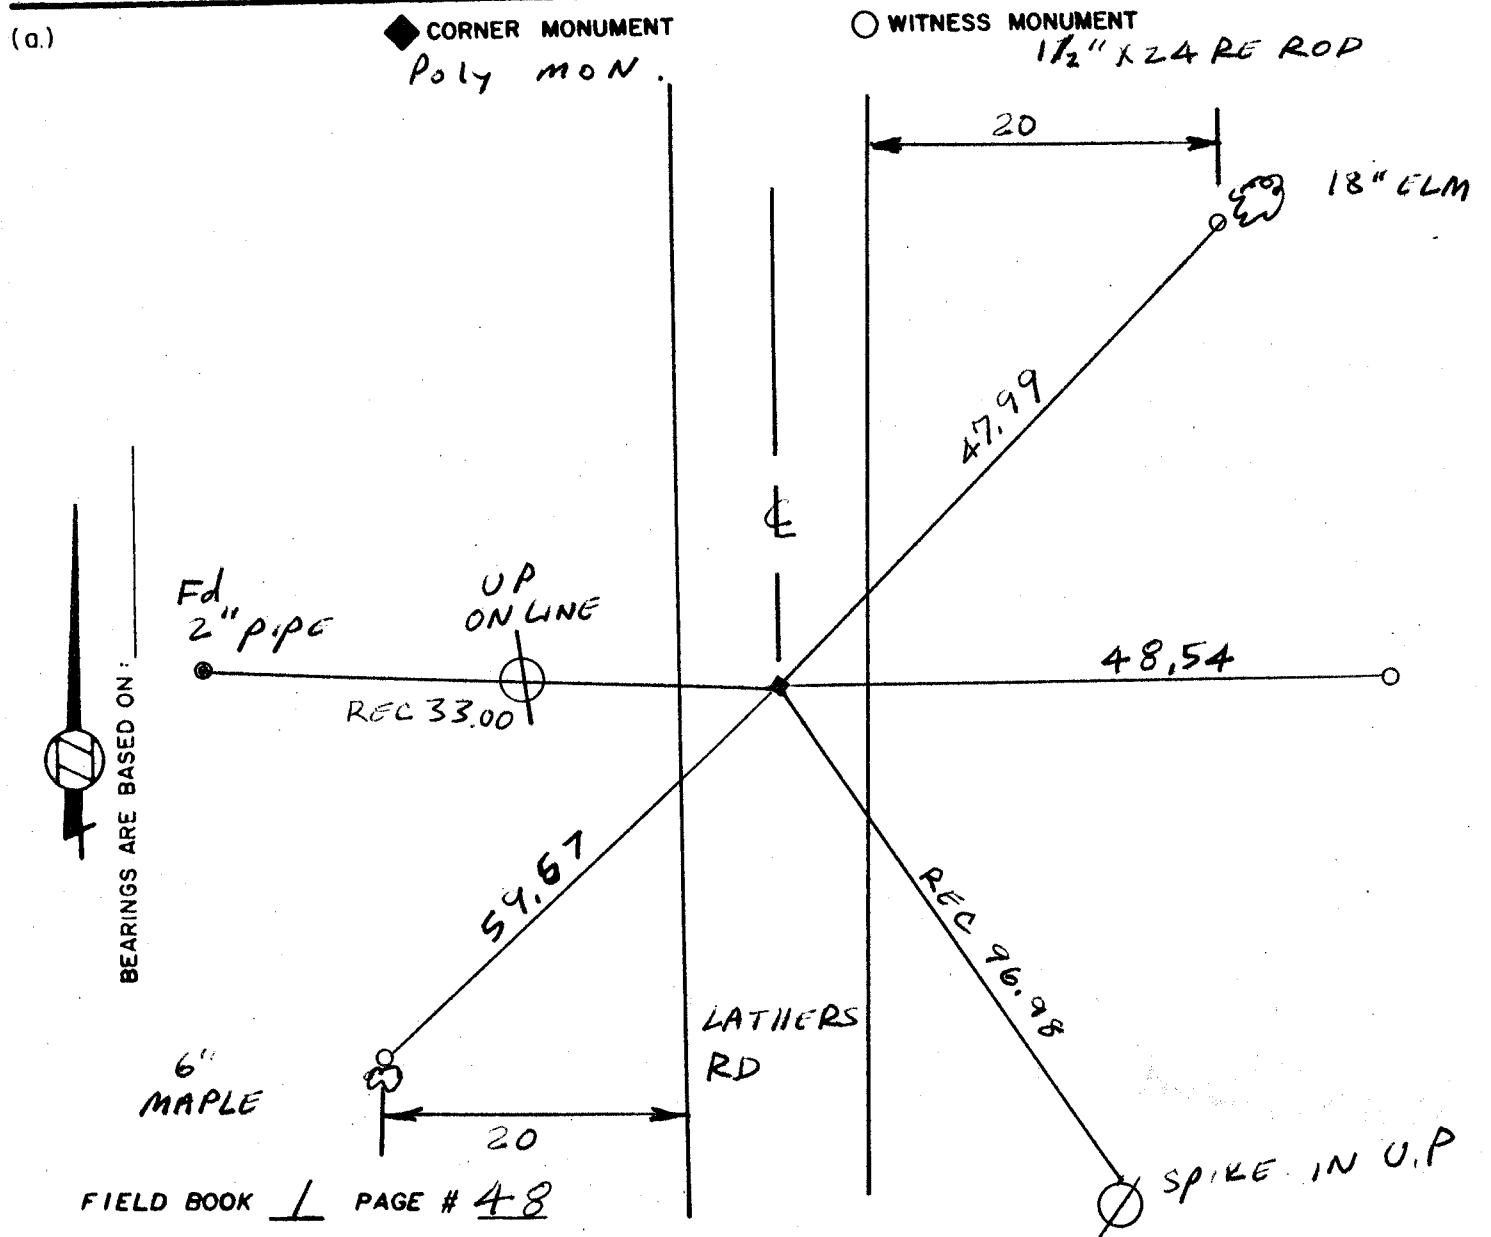 (a.)
CORNER MONUMENT
Poly MON.
WITNESS MONUMENT
1 1/2" X 24 RE ROD
20
18" ELM
47.99
℄
Fd
2" PIPE
UP
ON LINE
REC 33.00
48.54
BEARINGS ARE BASED ON:
59.67
REC 96.98
LATHERS
RD
6"
MAPLE
20
SPIKE IN U.P
FIELD BOOK 1 PAGE # 48